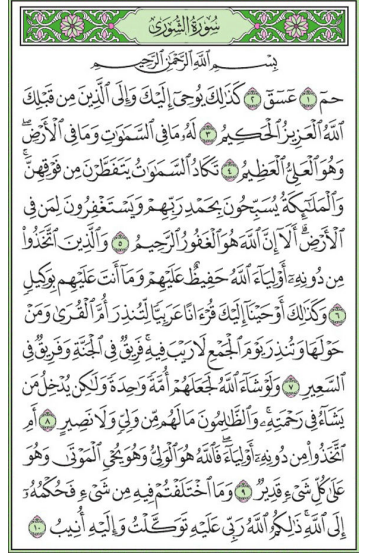 سُورَةُ الشُّورَىٰ
بِسْمِ اللَّهِ الرَّحْمَٰنِ الرَّحِيمِ
حمٓ ١ عٓسٓقٓ ٢ كَذَٰلِكَ يُوحِيٓ إِلَيْكَ وَإِلَى الَّذِينَ مِن قَبْلِكَ
اللَّهُ الْعَزِيزُ الْحَكِيمُ ٣ لَهُۥ مَا فِي السَّمَٰوَٰتِ وَمَا فِي الْأَرْضِۖ
وَهُوَ الْعَلِيُّ الْعَظِيمُ ٤ تَكَادُ السَّمَٰوَٰتُ يَتَفَطَّرْنَ مِن فَوْقِهِنَّۚ
وَالْمَلَٰٓئِكَةُ يُسَبِّحُونَ بِحَمْدِ رَبِّهِمْ وَيَسْتَغْفِرُونَ لِمَن فِي
الْأَرْضِۗ أَلَآ إِنَّ اللَّهَ هُوَ الْغَفُورُ الرَّحِيمُ ٥ وَالَّذِينَ اتَّخَذُوا۟
مِن دُونِهِۦٓ أَوْلِيَآءَ اللَّهُ حَفِيظٌ عَلَيْهِمْ وَمَآ أَنتَ عَلَيْهِم بِوَكِيلٍ
٦ وَكَذَٰلِكَ أَوْحَيْنَآ إِلَيْكَ قُرْءَانًا عَرَبِيًّا لِّتُنذِرَ أُمَّ الْقُرَىٰ وَمَنْ
حَوْلَهَا وَتُنذِرَ يَوْمَ الْجَمْعِ لَا رَيْبَ فِيهِۚ فَرِيقٌ فِي الْجَنَّةِ وَفَرِيقٌ فِي
السَّعِيرِ ٧ وَلَوْ شَآءَ اللَّهُ لَجَعَلَهُمْ أُمَّةً وَٰحِدَةً وَلَٰكِن يُدْخِلُ مَن
يَشَآءُ فِي رَحْمَتِهِۦۚ وَالظَّٰلِمُونَ مَا لَهُم مِّن وَلِيٍّ وَلَا نَصِيرٍ ٨ أَمِ
اتَّخَذُوا۟ مِن دُونِهِۦٓ أَوْلِيَآءَۖ فَاللَّهُ هُوَ الْوَلِيُّ وَهُوَ يُحْيِ الْمَوْتَىٰ وَهُوَ
عَلَىٰ كُلِّ شَيْءٍ قَدِيرٌ ٩ وَمَا اخْتَلَفْتُمْ فِيهِ مِن شَيْءٍ فَحُكْمُهُۥٓ
إِلَى اللَّهِۚ ذَٰلِكُمُ اللَّهُ رَبِّي عَلَيْهِ تَوَكَّلْتُ وَإِلَيْهِ أُنِيبُ ١٠